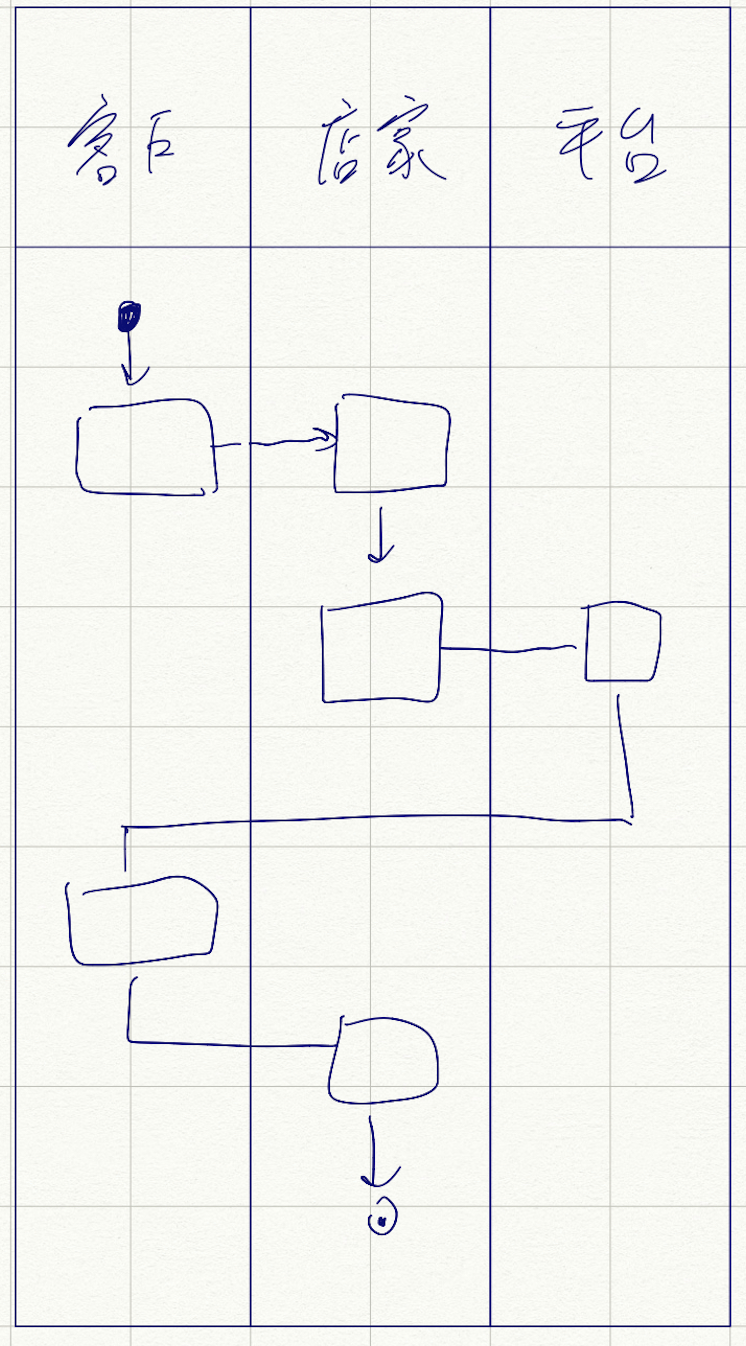 客户 店家 平台